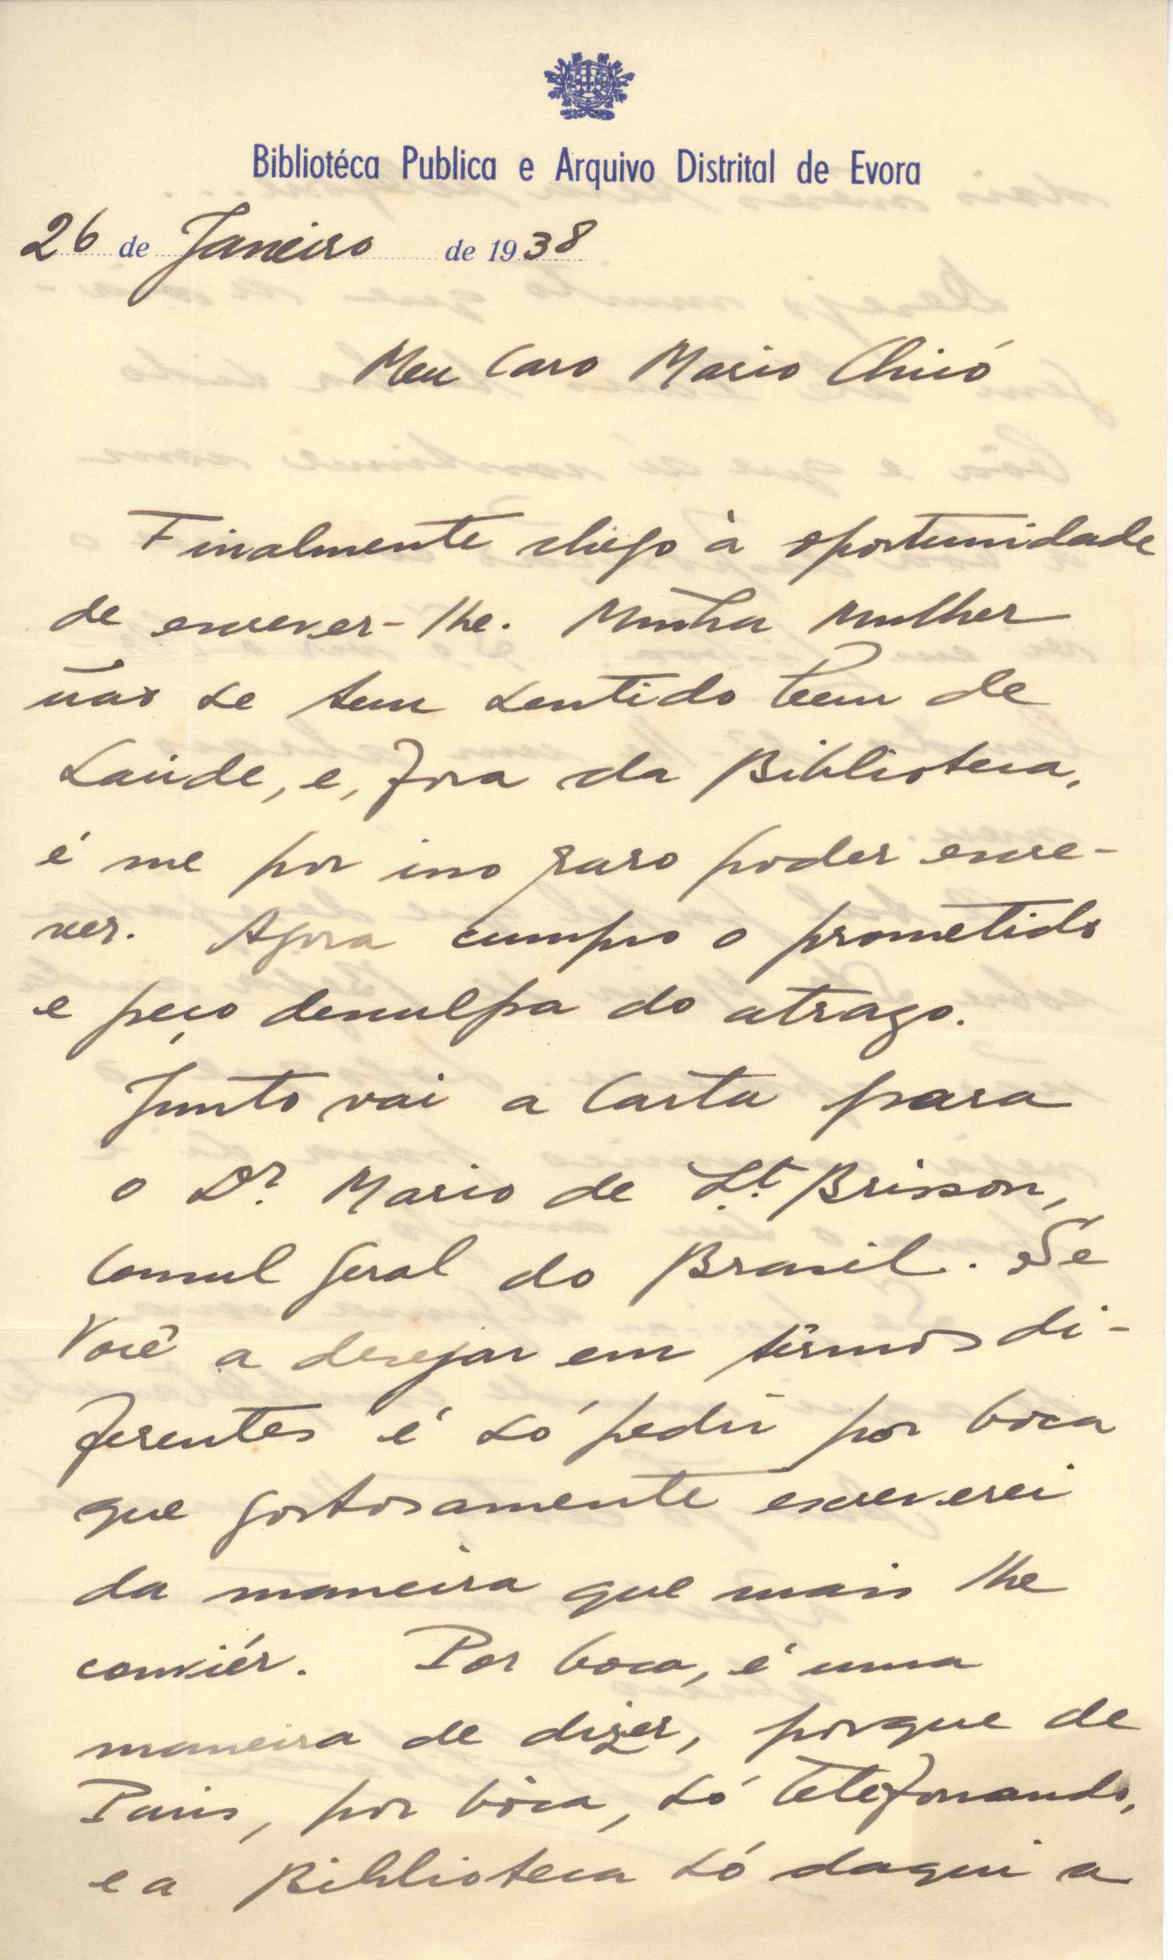 Bibliotéca Publica e Arquivo Distrital de Evora
26 de Janeiro de 1938
Meu Caro Mario Chicó
Finalmente chego à oportunidade
de escrever-lhe. Minha Mulher
não se tem sentido bem de
Saúde, e, fora da Biblioteca,
é me por isso raro poder escre-
ver. Agora cumpro o prometido
e peço desculpa do atrazo.
Junto vai a Carta para
o Dr. Mario de St. Brisson,
Consul Geral do Brasil. Se
Você a desejar em têrmos di-
ferentes é só pedir por boca
que gostosamente escreverei
da maneira que mais lhe
conviér. Por boca, é uma
maneira de dizer, porque de
Paris, por bôca, só telefonando,
e a Biblioteca só daqui a